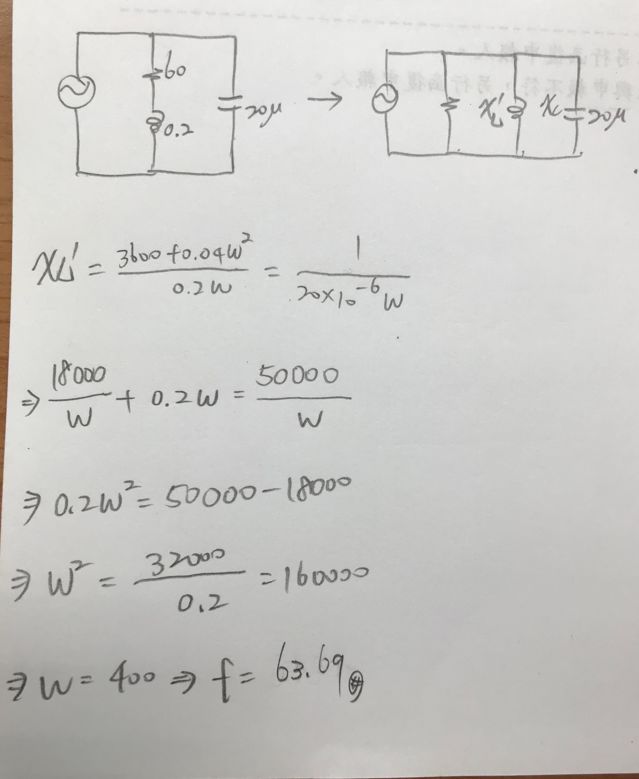 60
0.2
20μ
→
XL'
Xc
20μ
XL' = (3600+0.04W²)/(0.2W) = 1/(20×10⁻⁶W)
⇒ 18000/W + 0.2W = 50000/W
⇒ 0.2W² = 50000-18000
⇒ W² = 32000/0.2 = 160000
⇒ W = 400 ⇒ f = 63.69